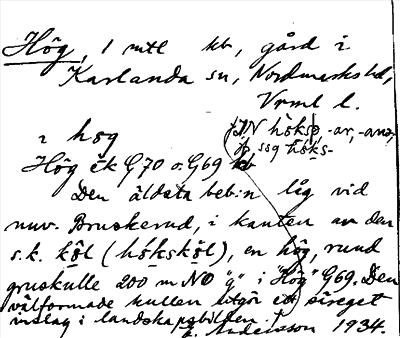 Hög, 1 mtl kb, gård i
Karlanda sn, Nordmarks hd,
Vrml l.
i hög
IN höksa, -ar, -ana,
jp ssg höks-
Hög ek G70 o. G69 kb
Den äldsta beb:n låg vid
nuv. Bruskerud, i kanten av den
s.k. kôl (hókskôl), en hög, rund
gruskulle 200 m NO "g" i "Hög" G69. Den
välformade kullen utgör ett säreget
inslag i landskapsbilden.
E. Andersson 1934.